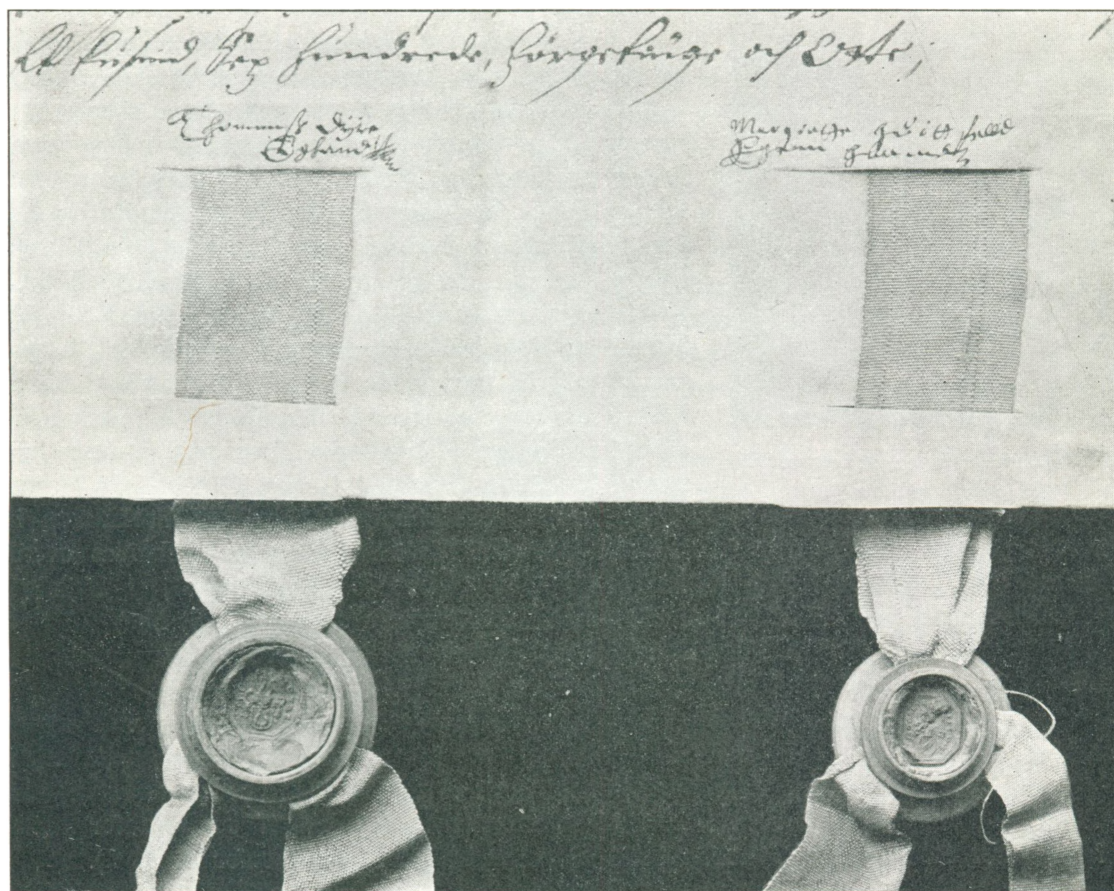 Et tusind, Sex Hundrede, förgetuige och Otte;
Thommes Dyre
Egehand
Margrette Huitfeld
Egenn haandt